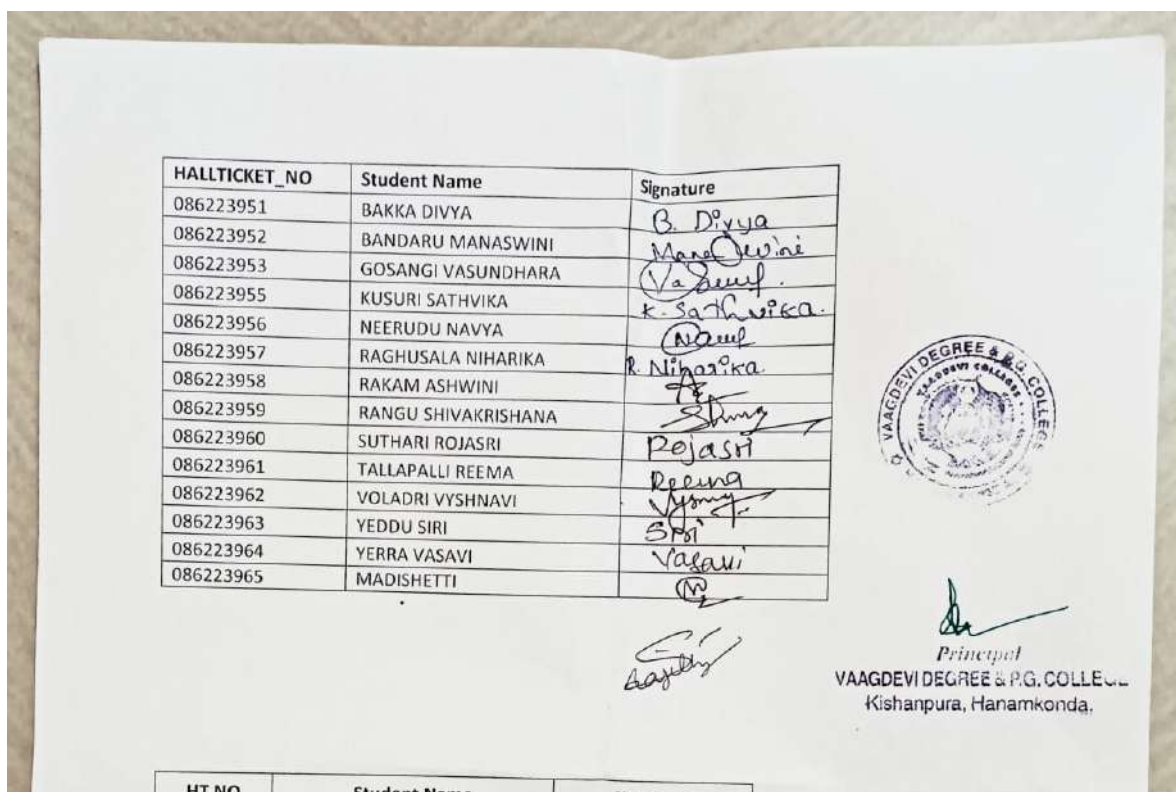 HALLTICKET_NO Student Name Signature
086223951 BAKKA DIVYA B. Divya
086223952 BANDARU MANASWINI
086223953 GOSANGI VASUNDHARA
086223955 KUSURI SATHVIKA K. Sathvika.
086223956 NEERUDU NAVYA
086223957 RAGHUSALA NIHARIKA R. Niharika.
086223958 RAKAM ASHWINI
086223959 RANGU SHIVAKRISHANA
086223960 SUTHARI ROJASRI Rojasri
086223961 TALLAPALLI REEMA Reema
086223962 VOLADRI VYSHNAVI
086223963 YEDDU SIRI Siri
086223964 YERRA VASAVI Vasavi
086223965 MADISHETTI
VAAGDEVI DEGREE & P.G. COLLEGE
VAAGDEVI COLLEGES
Principal
VAAGDEVI DEGREE & P.G. COLLEGE
Kishanpura, Hanamkonda.
HT NO Student Name